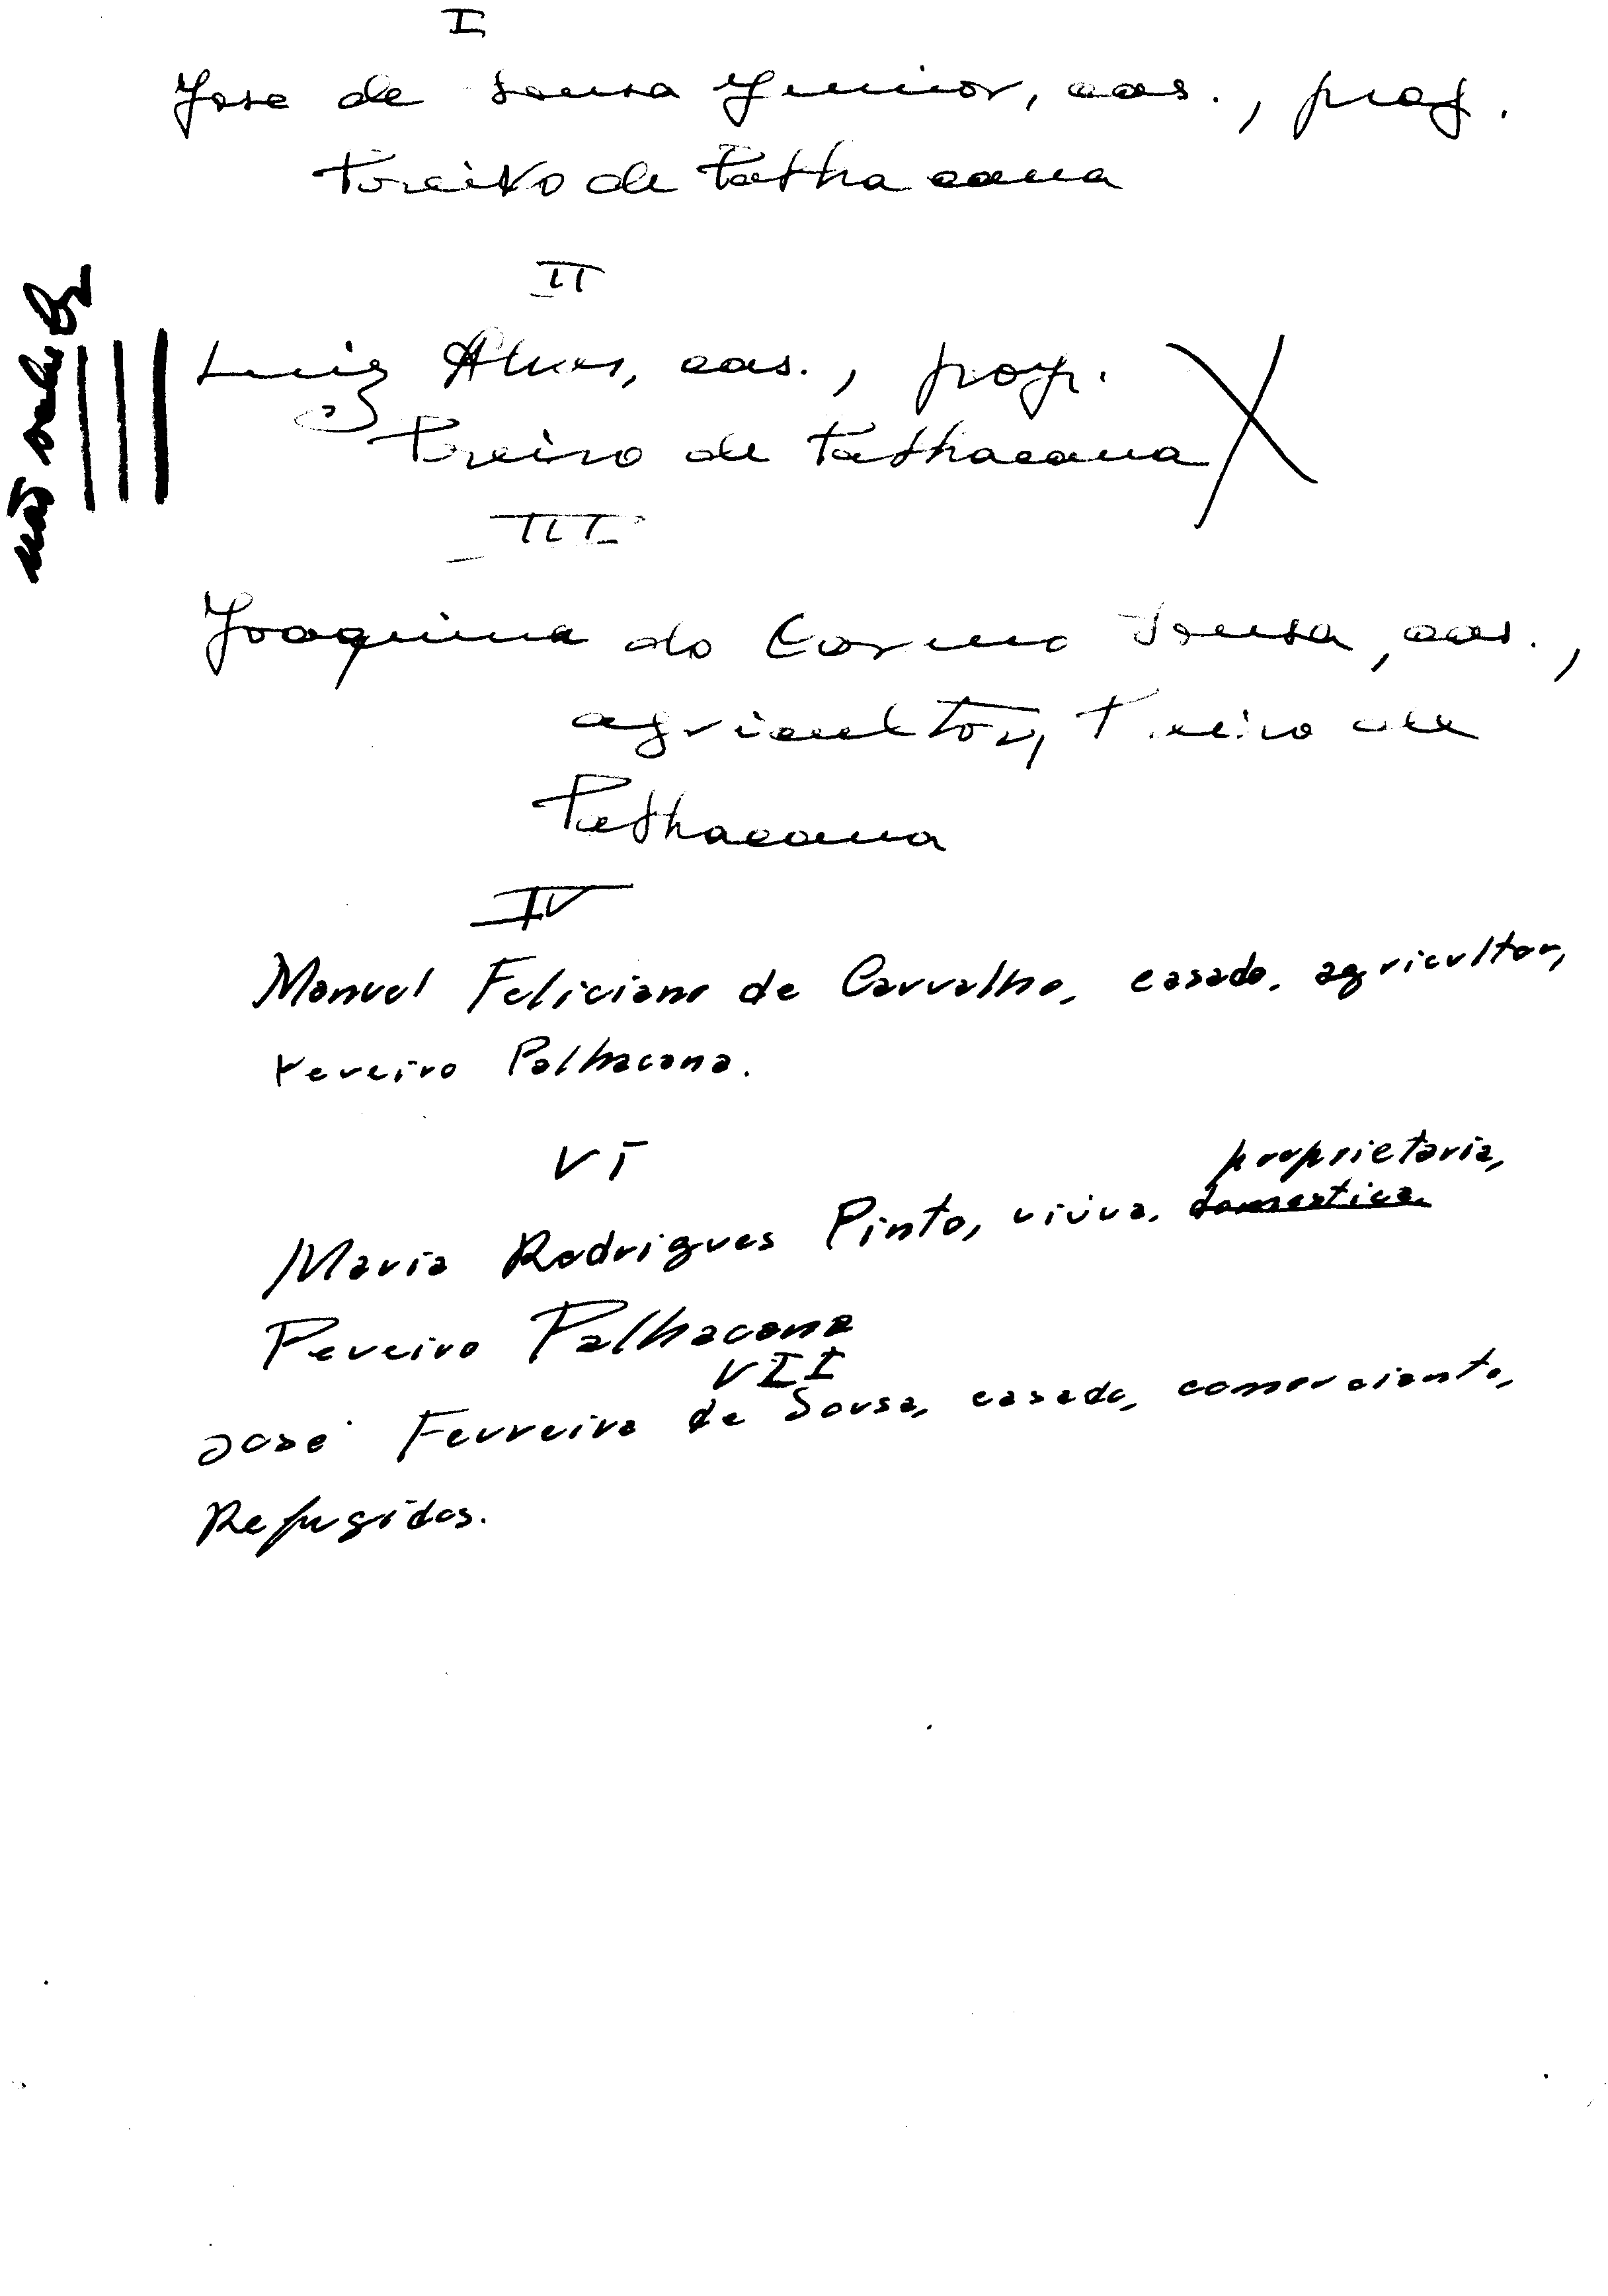 I
Jose de Sousa Junior, cas., prop.
Pereiro de Palhacana
não sabe
II
Luiz Alves, cas., prop.
Pereiro de Palhacana
III
Joaquim do Carmo Sousa, cas.,
agricultor, Pereiro de
Palhacana
IV
Manuel Feliciano de Carvalho, casado, agricultor,
Pereiro Palhacana.
VI
proprietaria,
Maria Rodrigues Pinto, viúva, domestica
Pereiro Palhacana
VII
José Ferreira de Sousa, casado, comerciante,
Refugidos.